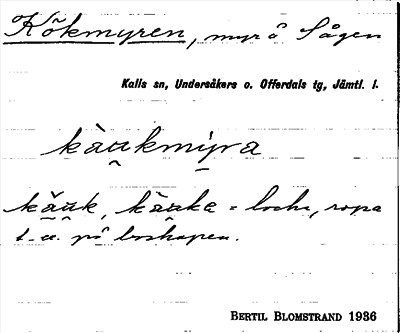 Kökmyren, myr å Sågen
Kalls sn, Undersåkers o. Offerdals tg, Jämtl. l.
kàu̯kmy̱ra
kău̯k, kàu̯ka = locka, ropa
t. ex. på boskapen.
BERTIL BLOMSTRAND 1936